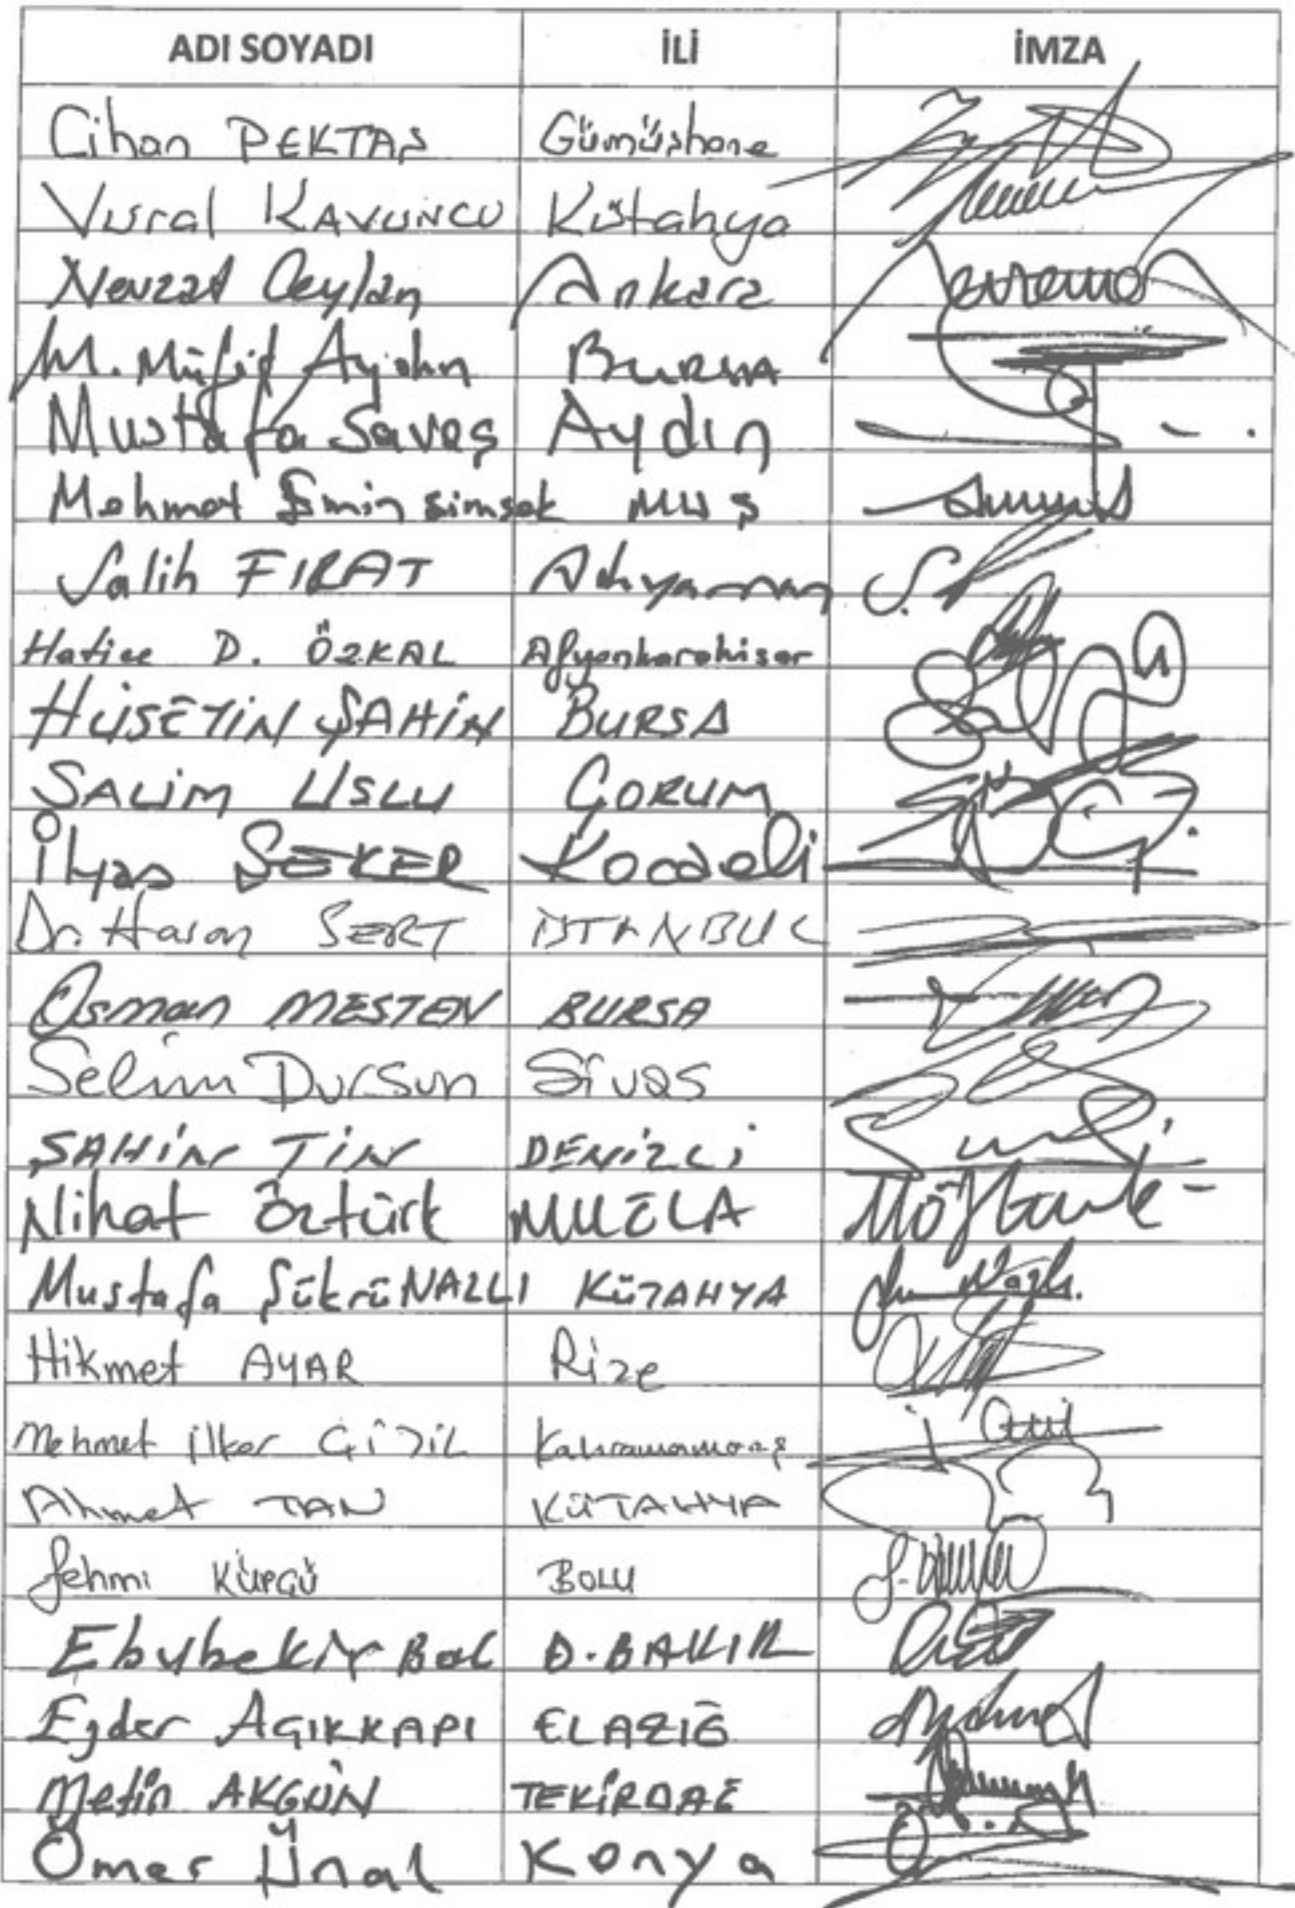 ADI SOYADI İLİ İMZA
Cihan PEKTAŞ Gümüşhane
Vural KAVUNCU Kütahya
Nevzat Ceylan Ankara
M. Müfit Aydın BURSA
Mustafa Savaş Aydın
Mehmet Emin Şimşek MUŞ
Salih FIRAT Adıyaman
Hatice D. ÖZKAL Afyonkarahisar
HÜSEYİN ŞAHİN BURSA
SALİM USLU ÇORUM
İlyas ŞEKER Kocaeli
Dr. Hasan SERT İSTANBUL
Osman MESTEN BURSA
Selim Dursun Sivas
ŞAHİN TİN DENİZLİ
Nihat Öztürk MUĞLA
Mustafa Şükrü NAZLI KÜTAHYA
Hikmet AYAR Rize
Mehmet İlker ÇİTİL Kahramanmaraş
Ahmet TAN KÜTAHYA
Fehmi KÜPÇÜ BOLU
Ebubekir Bal D.BAKIR
Ejder AÇIKKAPI ELAZIĞ
Metin AKGÜN TEKİRDAĞ
Ömer Ünal Konya